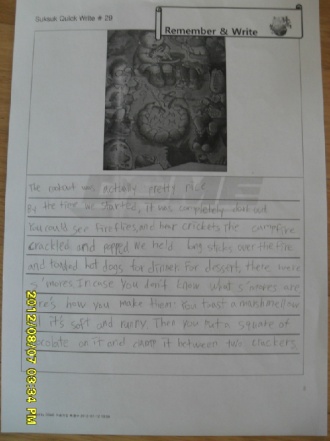 Quick Write # 29
Remember & Write
The cookout was actually pretty nice
By the time we started, it was completely dark out
You could see fireflies and hear crickets The campfire
crackled and popped We held long sticks over the fire
and toasted hot dogs for dinner For dessert, there were
s'mores In case you don't know what s'mores are
here's how you make them: You toast a marshmallow
it's soft and runny. Then you put a square of
chocolate on it and cramp it between two crackers
2012/08/07 03:34 PM